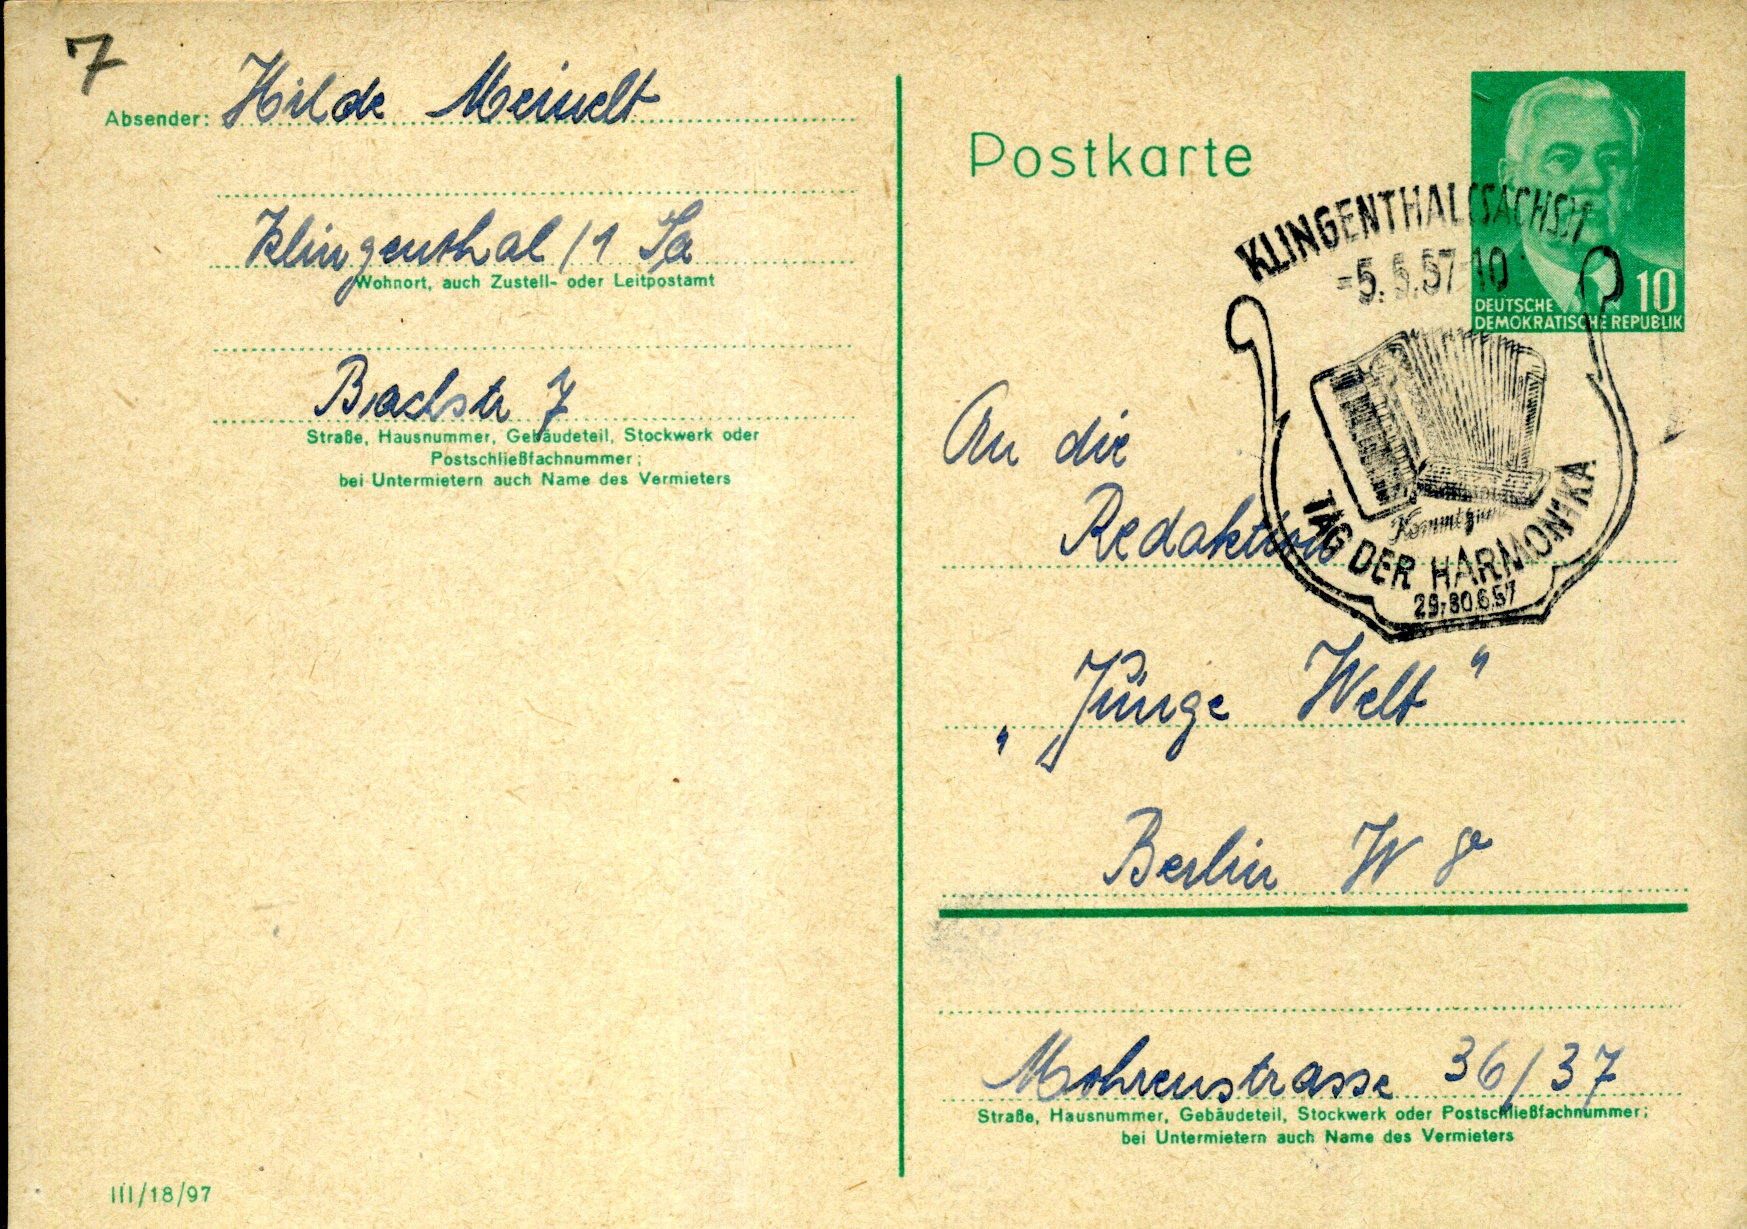 7
Absender: Hilde Meinelt
Klingenthal / 1 Sa
Wohnort, auch Zustell- oder Leitpostamt
Bachstr 7
Straße, Hausnummer, Gebäudeteil, Stockwerk oder
Postschließfachnummer;
bei Untermietern auch Name des Vermieters
III/18/97
Postkarte
10
DEUTSCHE
DEMOKRATISCHE REPUBLIK
KLINGENTHAL (SACHS)1
-5.5.57-10
Kommt zum
TAG DER HARMONIKA
29.-30.6.57
An die
Redaktion
„Junge Welt"
Berlin W 8
Mohrenstrasse 36/37
Straße, Hausnummer, Gebäudeteil, Stockwerk oder Postschließfachnummer;
bei Untermietern auch Name des Vermieters